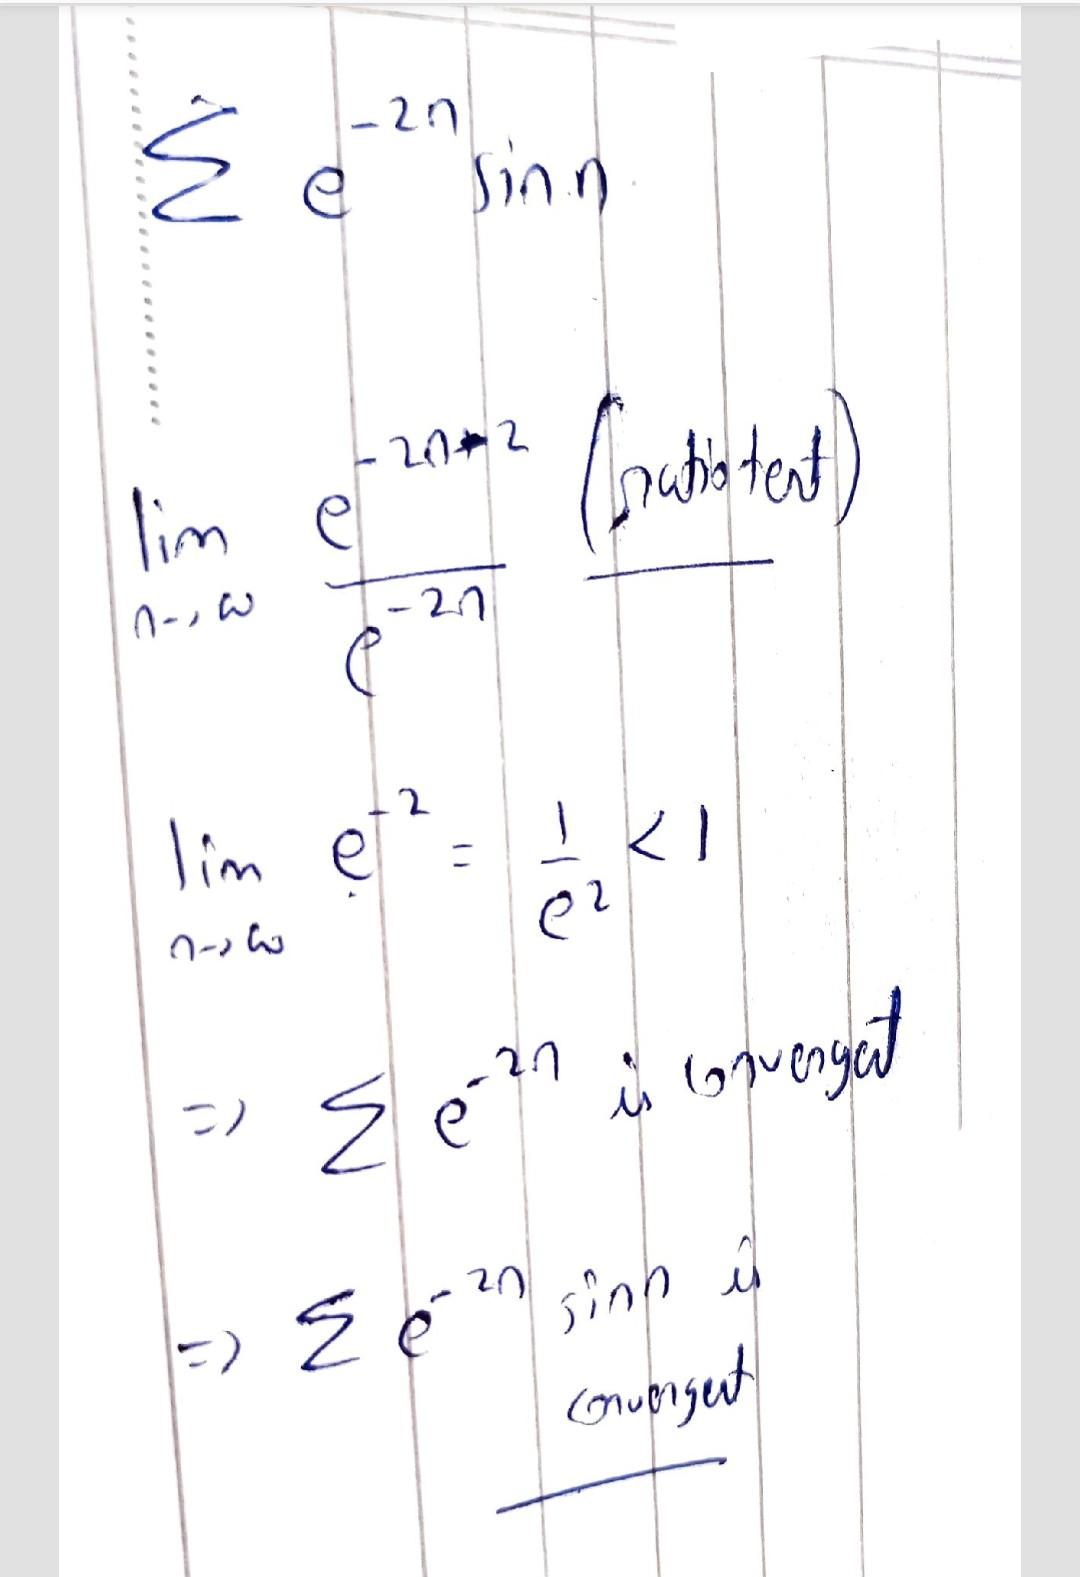 Σ e^{-2n} sin n
lim n→∞ e^{-2n-2} / e^{-2n} (ratio test)
lim n→∞ e^{-2} = 1/e^2 < 1
=> Σ e^{-2n} is convergent
=> Σ e^{-2n} sin n is
convergent